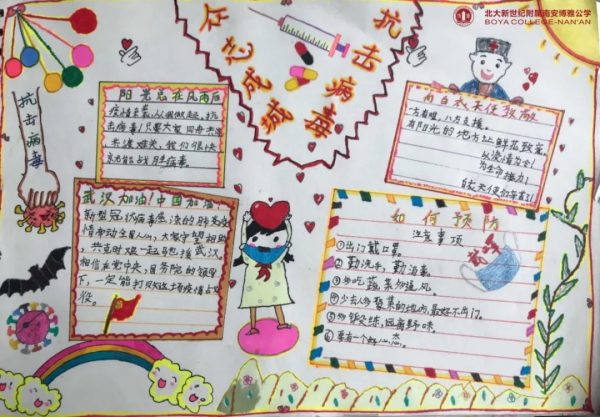 北大新世纪附属南安博雅公学
BOYA COLLEGE-NAN'AN
众志成城
抗击病毒
抗击病毒
阳光总在风雨后
疫情来袭,从我做起,抗
击病毒!只要大家同舟共济
共渡难关,我们很快
就能战胜病毒。
向白衣天使致敬
一方有难,八方支援。
有阳光的地方让鲜花致意
为生命接力!
白衣天使你辛苦了!
武汉加油!中国加油!
新型冠状病毒感染的肺炎疫
情牵动全国人心,大家守望相助
共克时艰一起守护武汉,
相信在党中央、国务院的领导
下,一定能打
役。
如何预防
注意事项
①出门戴口罩。
②勤洗手,勤消毒。
③多吃蔬菜勤通风。
④少去人多密集的地方,最好不出门。
⑤多锻炼,远离野味。
⑥要有一个好心态。